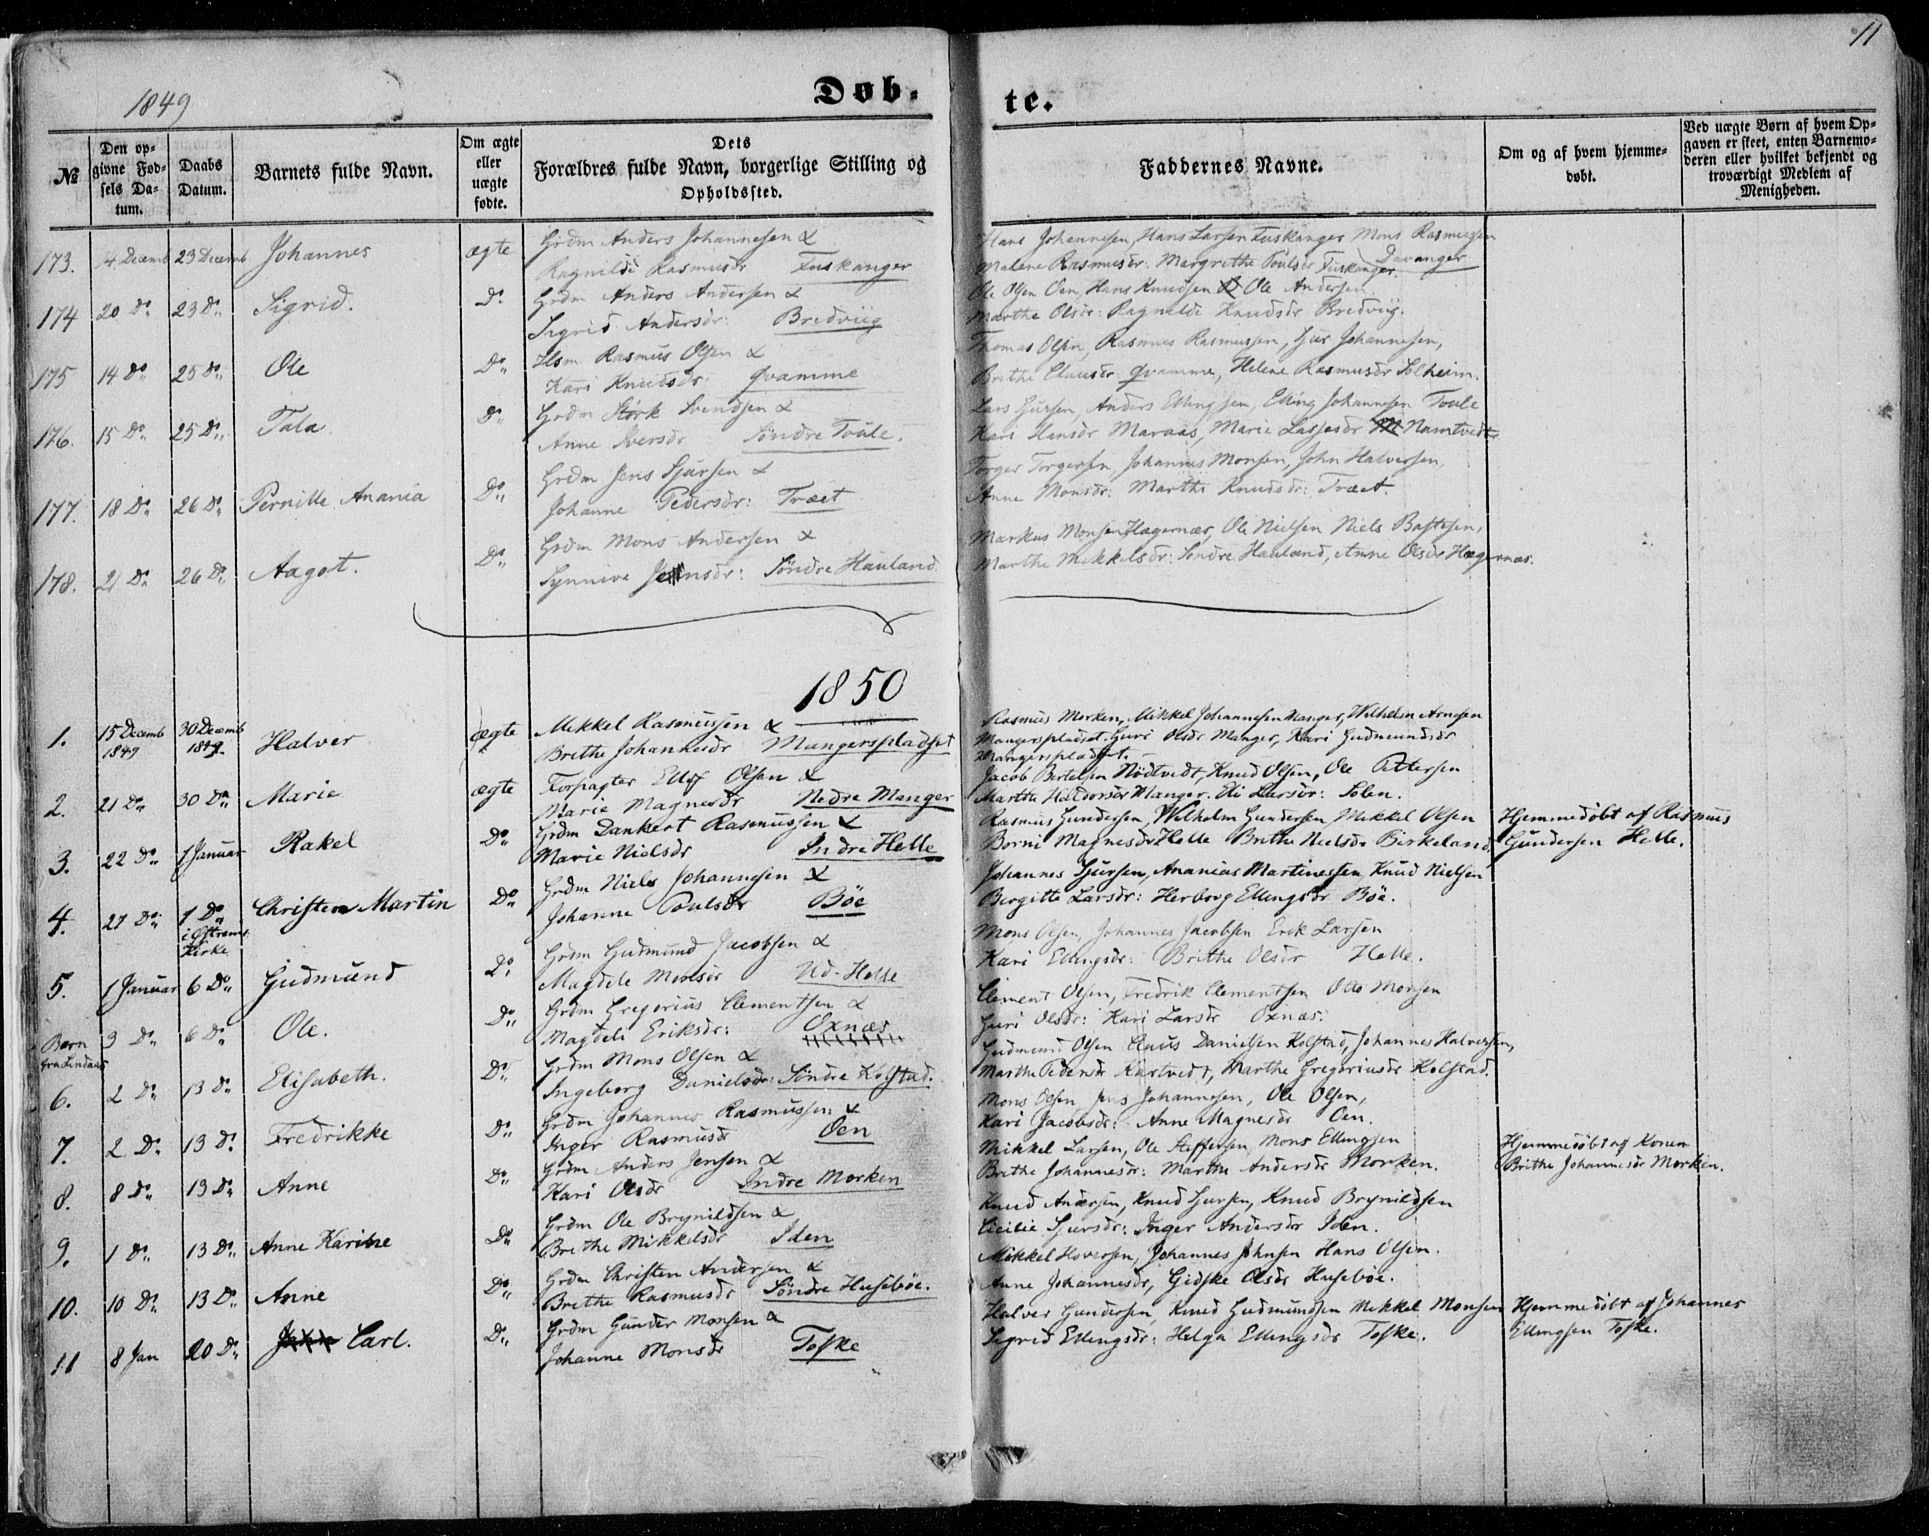 11
1849
Døb-
te.
№
Den op-
givne Fød-
sels Da-
tum.
Daabs
Datum.
Barnets fulde Navn.
Om ægte
eller
uægte
fødte.
Dets
Forældres fulde Navn, borgerlige Stilling og
Opholdssted.
Faddernes Navne.
Om og af hvem hjemme-
døbt.
Ved uægte Børn af hvem Op-
gaven er skeet, enten Barnemo-
deren eller hvilket bekjendt og
troværdigt Medlem af
Menigheden.
173. 14 Decemb 23 Decemb Johannes ægte Grdm Anders Johannesen &
Ragnilde Rasmusdr Fuskanger
Hans Johannesen, Hans Larsen Fuskanger Mons Rasmussen
Davanger
Malene Rasmusdr: Margrethe Poulsdr Fuskanger.
174 20 Do 23 Do Sigrid. Do Grdm Anders Andersen &
Sigrid Andersdr: Bredviig
Ole Olsen Oen, Hans Knudsen Ole Andersen
Marthe Olsdr: Ragnilde Knudsdr Bredviig.
175 14 Do 25 Do Ole Do Hsm Rasmus Olsen &
Kari Knudsdr: Qvamme
Thomas Olsen, Rasmus Rasmussen, Gur Johannesen,
Brithe Clausdr Qvamme, Helene Rasmusdr Solheim.
176. 15 Do 25 Do Tala Do Grdm Størk Svendsen &
Anne Iversdr Søndre Toule.
Lars Gursen, Anders Ellingsen, Elling Johannesen Toule
Kari Hansdr Maraas, Marie Lassesdr Namtvedt
177. 18 Do 26 Do Pernille Anania Do Grdm Jens Sjursen &
Johanne Pedersdr: Træet
Torger Torgersen, Johannes Monsen, John Halversen,
Anne Monsdr: Marthe Knudsdr: Træet.
178. 21 Do 26 Do Aagot. Do Grdm Mons Andersen &
Synnive Jensdr: Søndre Hauland
Markus Monsen Hægernæs, Ole Nielsen Niels Bastesen,
Marthe Mikkelsdr: Søndre Hauland, Anne Olsdr Hægernæs.
1850
1. 15 Decemb 1849 30 Decemb 1849. Halver ægte Mikkel Rasmussen &
Brethe Johannesdr Mangerspladset
Rasmus Morken, Mikkel Johannesen Manger, Wilhelm Arnesen
Mangerspladset, Guri Olsdr Manger, Kari Gudmundsdr
Mangerspladset.
2. 21 Do 30 Do Marie ægte Forpagter Ellef Olsen &
Marie Magnesdr Nedre Manger
Jacob Bertelsen Nødtvedt, Knud Olsen, Ole Pettersen
Marthe Haldorsdr Manger. Eli Larsdr: Solen.
3. 22 Do 1 Januar Rakel Do Grdm Dankert Rasmussen &
Marie Nielsdr Indre Helle
Rasmus Gundersen, Wilhelm Gundersen Mikkel Olsen
Borni Magnesdr Helle Brethe Nielsdr Birkeland.
Hjemmedøbt af Rasmus
Gundersen Helle.
4. 27 Do 1 Do
i Østrems
Kirke
Christen Martin Do Grdm Niels Johannesen &
Johanne Poulsdr Bøe
Johannes Sjursen, Ananias Martinussen Knud Nielsen
Birgitte Larsdr: Herborg Ellingsdr Bøe.
5. 1 Januar 6 Do Gudmund Do Grdm Gudmund Jacobsen &
Magdele Monsdr Ud-Helle
Mons Olsen, Johannes Jacobsen Erik Larsen
Kari Ellingsdr: Brithe Olsdr Helle.
Barn
fra Lindaas
3 Do 6 Do Ole. Do Grdm Gregorius Clementsen &
Magdeli Eriksdr: Oxnæs
Clement Olsen, Fredrik Clementsen Otto Monsen
Guri Olsdr: Kari Larsdr Oxnæs.
6. 2 Do 13 Do Elisabeth. Do Grdm Mons Olsen &
Ingeborg Danielsdr: Søndre Kolstad.
Gudmund Olsen Claus Danielsen Kolstad, Johannes Halversen,
Marthe Pedersdr Kartvedt, Marthe Gregoriusdr Kolstad.
7. 2 Do 13 Do Fredrikke Do Grdm Johannes Rasmussen &
Inger Rasmusdr Oen
Mons Olsen Jens Johannesen, Ole Olsen,
Kari Jacobsdr: Anne Magnesdr Oen.
8. 8 Do 13 Do Anne Do Grdm Anders Jensen &
Kari Olsdr Indre Morken
Mikkel Larsen, Ole Steffensen, Mons Ellingsen
Brithe Johannesdr: Marthe Andersdr Morken.
Hjemmedøbt af Konen
Brithe Johannesdr Morken.
9. 1 Do 13 Do Anne Karine Do Grdm Ole Brynildsen &
Brethe Mikkelsdr Iden
Knud Andersen, Knud Sjursen, Knud Brynildsen
Cicilie Sjursdr: Inger Andersdr Iden.
10. 10 Do 13 Do Anne Do Grdm Christen Andersen &
Brethe Rasmusdr Søndre Husebøe.
Mikkel Iversen, Johannes Johnsen Hans Olsen.
Anne Johannesdr, Gidske Olsdr Husebøe.
11 8 Jan 20 Do Carl. Do Grdm Gunder Monsen &
Johanne Monsdr Toske
Halver Gundersen, Knud Gudmundsen Mikkel Monsen
Sigrid Ellingsdr: Helga Ellingsdr Toske.
Hjemmedøbt af Johannes
Ellingsen Toske.